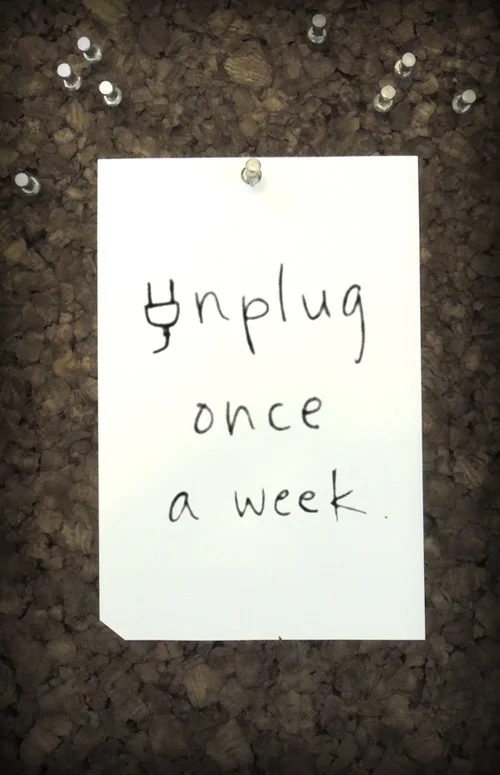 Unplug
once
a week.